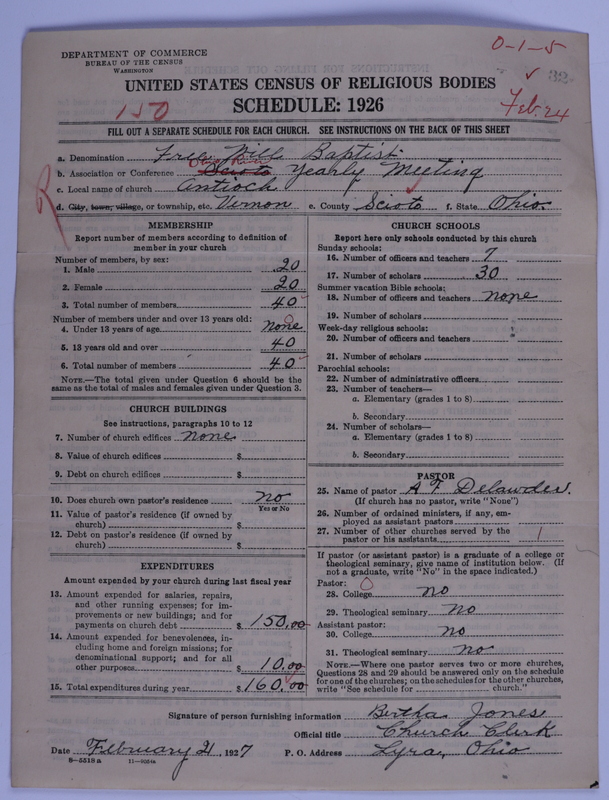 DEPARTMENT OF COMMERCE
BUREAU OF THE CENSUS
WASHINGTON
0-1-5
32
UNITED STATES CENSUS OF RELIGIOUS BODIES
SCHEDULE: 1926
150
Feb. 24
FILL OUT A SEPARATE SCHEDULE FOR EACH CHURCH. SEE INSTRUCTIONS ON THE BACK OF THIS SHEET
a. Denomination Free Will Baptist
b. Association or Conference Scioto Ohio River Yearly Meeting
c. Local name of church Antioch
d. City, town, village, or township, etc. Vernon e. County Scioto f. State Ohio.
MEMBERSHIP
Report number of members according to definition of member in your church
Number of members, by sex:
1. Male 20
2. Female 20
3. Total number of members 40
Number of members under and over 13 years old:
4. Under 13 years of age none 0
5. 13 years old and over 40
6. Total number of members 40
NOTE.—The total given under Question 6 should be the
same as the total of males and females given under Question 3.
CHURCH BUILDINGS
See instructions, paragraphs 10 to 12
7. Number of church edifices none
8. Value of church edifices $
9. Debt on church edifices $
10. Does church own pastor's residence no
Yes or No
11. Value of pastor's residence (if owned by
church) $
12. Debt on pastor's residence (if owned by
church) $
EXPENDITURES
Amount expended by your church during last fiscal year
13. Amount expended for salaries, repairs,
and other running expenses; for im-
provements or new buildings; and for
payments on church debt $ 150.00
14. Amount expended for benevolences, in-
cluding home and foreign missions; for
denominational support; and for all
other purposes 10.00
15. Total expenditures during year $ 160.00
CHURCH SCHOOLS
Report here only schools conducted by this church
Sunday schools:
16. Number of officers and teachers 7
17. Number of scholars 30
Summer vacation Bible schools:
18. Number of officers and teachers none
19. Number of scholars
Week-day religious schools:
20. Number of officers and teachers
21. Number of scholars
Parochial schools:
22. Number of administrative officers
23. Number of teachers—
a. Elementary (grades 1 to 8)
b. Secondary
24. Number of scholars—
a. Elementary (grades 1 to 8)
b. Secondary
PASTOR
25. Name of pastor A F Delawder.
(If church has no pastor, write "None")
26. Number of ordained ministers, if any, em-
ployed as assistant pastors
27. Number of other churches served by the
pastor or his assistants 1
If pastor (or assistant pastor) is a graduate of a college or
theological seminary, give name of institution below. (If
not a graduate, write "No" in the space indicated.)
Pastor: 0
28. College no
29. Theological seminary no
Assistant pastor:
30. College no
31. Theological seminary no
NOTE.—Where one pastor serves two or more churches,
Questions 28 and 29 should be answered only on the schedule
for one of the churches; on the schedules for the other churches,
write "See schedule for church."
Signature of person furnishing information Bertha Jones
Official title Church Clerk
Date February 21, 1927 P. O. Address Lyra, Ohio
8—5518 a